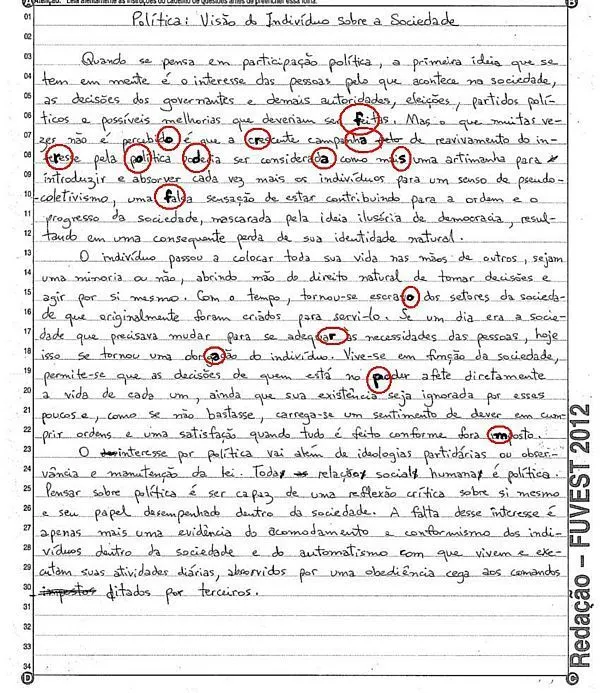 Atenção: Leia atentamente as instruções do caderno de questões antes de preencher essa folha.
Política: Visão do Indivíduo sobre a Sociedade
Quando se pensa em participação política, a primeira ideia que se
tem em mente é o interesse das pessoas pelo que acontece na sociedade,
as decisões dos governantes e demais autoridades, eleições, partidos polí-
ticos e possíveis melhorias que deveriam ser feitas. Mas o que muitas ve-
zes não é percebido é que a crescente campanha de reavivamento do in-
teresse pela política poderia ser considerada como mais uma artimanha para
introduzir e absorver cada vez mais os indivíduos para um senso de pseudo-
coletivismo, uma falsa sensação de estar contribuindo para a ordem e o
progresso da sociedade, mascarada pela ideia ilusória de democracia, resul-
tando em uma consequente perda de sua identidade natural.
O indivíduo passou a colocar toda sua vida nas mãos de outros, sejam
uma minoria ou não, abrindo mão do direito natural de tomar decisões e
agir por si mesmo. Com o tempo, tornou-se escravo dos setores da socieda-
de que originalmente foram criados para servi-lo. Se um dia era a socie-
dade que precisava mudar para se adequar as necessidades das pessoas, hoje
isso se tornou uma obrigação do indivíduo. Vive-se em função da sociedade,
permite-se que as decisões de quem está no poder afete diretamente
a vida de cada um, ainda que sua existência seja ignorada por esses
poucos e, como se não bastasse, carrega-se um sentimento de dever em cum-
prir ordens e uma satisfação quando tudo é feito conforme fora imposto.
O interesse por política vai além de ideologias partidárias ou obser-
vância e manutenção da lei. Toda relação social humana é política.
Pensar sobre política é ser capaz de uma reflexão crítica sobre si mesmo
e seu papel desempenhado dentro da sociedade. A falta desse interesse é
apenas mais uma evidência do acomodamento e conformismo dos indi-
víduos dentro da sociedade e do automatismo com que vivem e exe-
cutam suas atividades diárias, absorvidos por uma obediência cega aos comandos
impostos ditados por terceiros.
Redação – FUVEST 2012